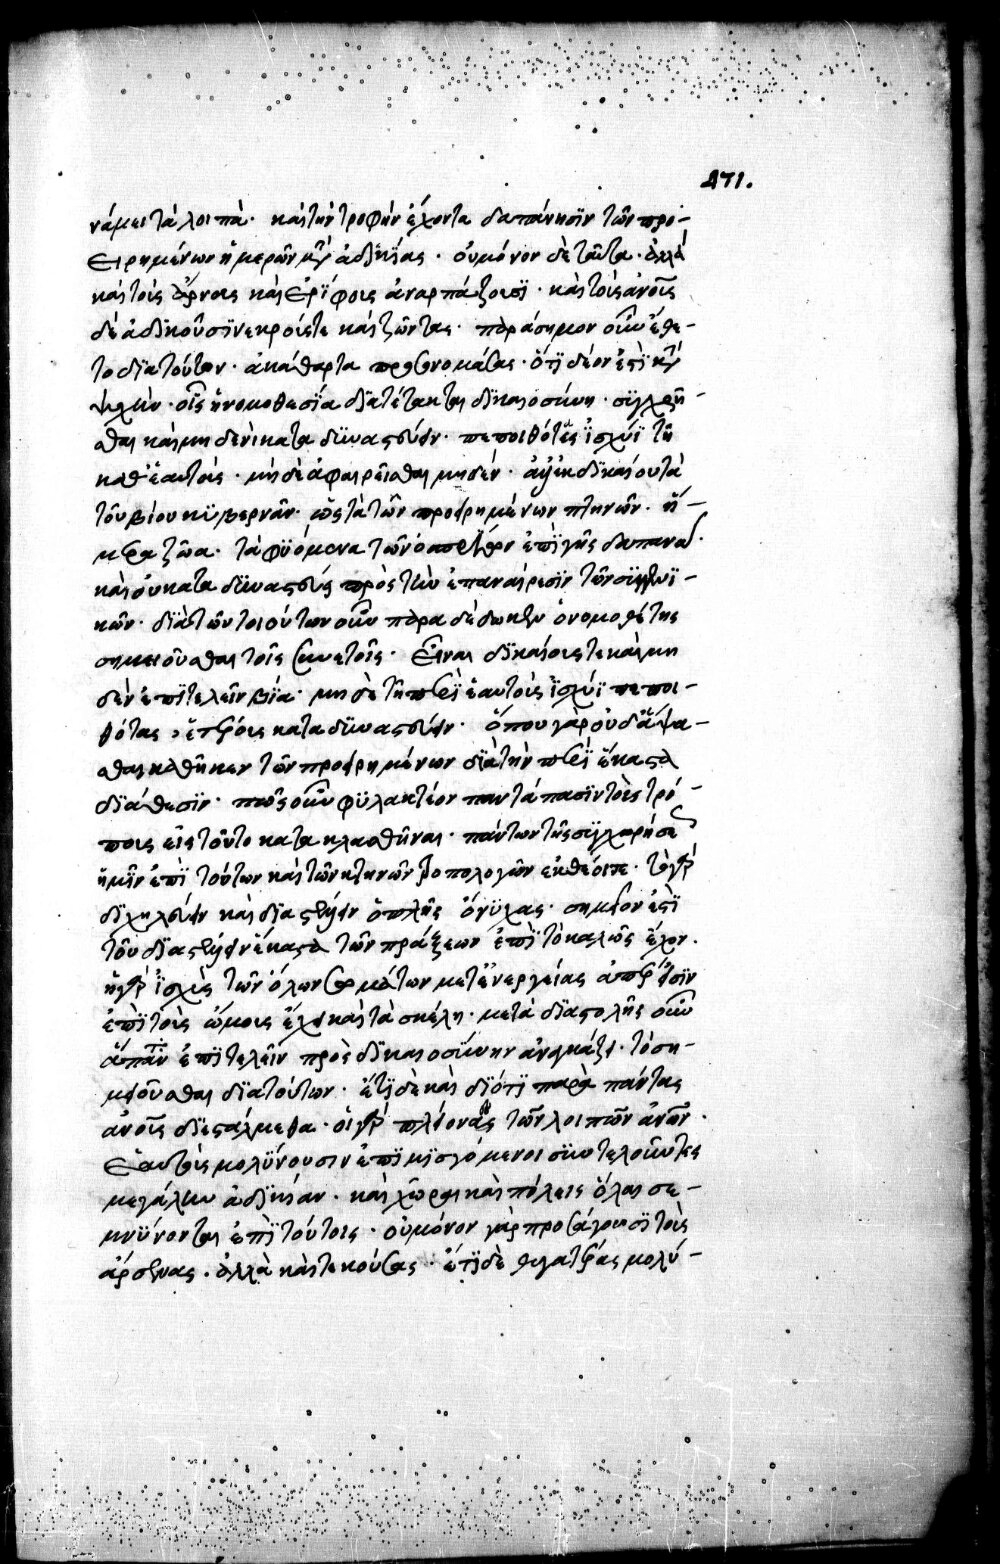 471.
νάμει τὰ λοιπά· καὶ τὴν τροφὴν ἔχοντα δαπάνησϊν τῶν προ-
ειρημένων ἡμερῶν μετ' ἀδϊκίας· οὐ μόνον δὲ ταῦτα· ἀλλὰ
καὶ τοῖς ἄρνοις καὶ ἐρϊφοις ἀναρπάζουσϊ· καὶ τοὺς ἀνους
δὲ ἀδϊκοῦσϊ νεκρούς τε καὶ ζῶντας· παράσημον οὖν ἔθε-
το δϊὰ τούτων· ἀκάθαρτα προσονομάσας· ὅτϊ δέον ἐστὶ κατὰ
ψυχὴν· οἷς ἡ νομοθεσϊα δϊατέτακται δϊκαιοσύνῃ· συγχρῆ
σθαι καὶ μηδένα καταδϋναστεύειν· πεποιθότας ἰσχύϊ τῇ
καθ' ἑαυτοὺς· μὴ δὲ ἀφαιρεῖσθαι μηδέν· ἀλλ' ἐκ δϊκαίου τὰ
τοῦ βίου κϋβερνᾶν· ὡς τὰ τῶν προειρημένων πτηνῶν· ἥ-
μερα ζῶα· τὰ φϋόμενα τῶν ὀσπρίων ἐπὶ γῆς δαπανᾶ·
καὶ οὐ καταδϋναστεύει πρὸς τὴν ἐπαναίρεσϊν τῶν σϋγγενϊ-
κῶν· δϊὰ τῶν τοιούτων οὖν παραδέδωκεν ὁ νομοθέτης
σημειοῦσθαι τοῖς συνετοῖς· εἶναι δϊκαίους τε καὶ μη
δὲν ἐπϊτελεῖν βϊα· μη δὲ τῇ περὶ ἑαυτοὺς ἰσχύϊ πεποι-
θότας, ἑτέρους καταδϋναστεύειν· ὅπου γὰρ οὐδ' ἅψα-
σθαι καθῆκεν τῶν προειρημένων δϊὰ τὴν περὶ ἕκαστα
δϊάθεσϊν· πῶς οὖν φϋλακτέον παντάπασϊν τοὺς τρό-
πους εἰς τοῦτο κατακλασθῆναι· πάντων τῆς συγχωρήσε
ἡμῖν ἐπὶ τούτων καὶ τῶν κτηνῶν τροπολογῶν ἐκθέειται· τὸ γὰρ
δϊχηλεύειν καὶ δϊαστέλειν ὁπλῆς ὄνϋχας· σημεῖον ἐστὶ
τοῦ δϊαστέλειν ἕκαστα τῶν πράξεων ἐπὶ τὸ καλῶς ἔχον·
ἡ γὰρ ἰσχὺς τῶν ὅλων σωμάτων μετ' ἐνεργείας ἀπέρεισϊν
ἐπὶ τοὺς ὤμους ἔχει καὶ τὰ σκέλη· μετὰ δϊαστολῆς οὖν
ἅπαντα ἐπϊτελεῖν πρὸς δϊκαιοσύνην ἀναγκάζει· τὸ ση-
μειοῦσθαι δϊὰ τούτων· ἔτϊ δὲ καὶ δϊότϊ παρὰ πάντας
ἀνους δϊεστάλμεθα· οἱ γὰρ πλείονες τῶν λοιπῶν ἀνων·
ἑαυτοὺς μολϋνουσιν ἐπϊμϊσγόμενοι σϋντελοῦντες
μεγάλην ἀδϊκίαν· καὶ χῶραι καὶ πόλεις ὅλαι σε-
μνϋνονται ἐπὶ τούτοις· οὐ μόνον γὰρ προσάγουσϊ τοὺς
ἄρσενας· ἀλλὰ καὶ τεκούσας· ἔτϊ δὲ θυγατέρας μολύ-